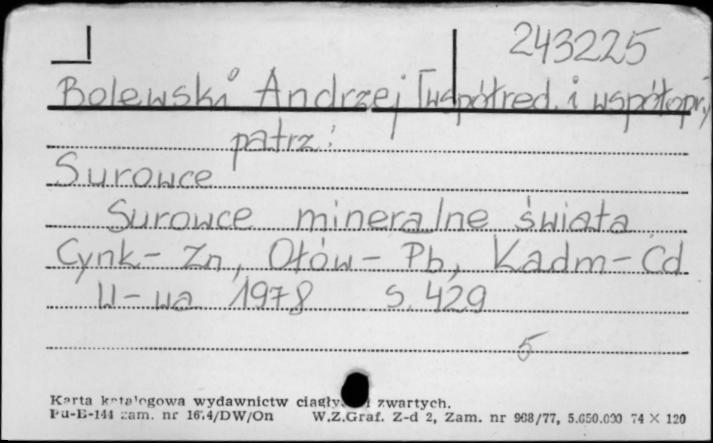 243225
Bolewski Andrzej [współred. i współopr.]
patrz:
Surowce
Surowce mineralne świata
Cynk - Zn, Ołów - Pb, Kadm - Cd
W-wa 1978 s. 429
5
Karta katalogowa wydawnictw ciągłych i zwartych.
Pu-E-144 zam. nr 16.4/DW/On W.Z.Graf. Z-d 2, Zam. nr 968/77, 5.650.000 74 × 120